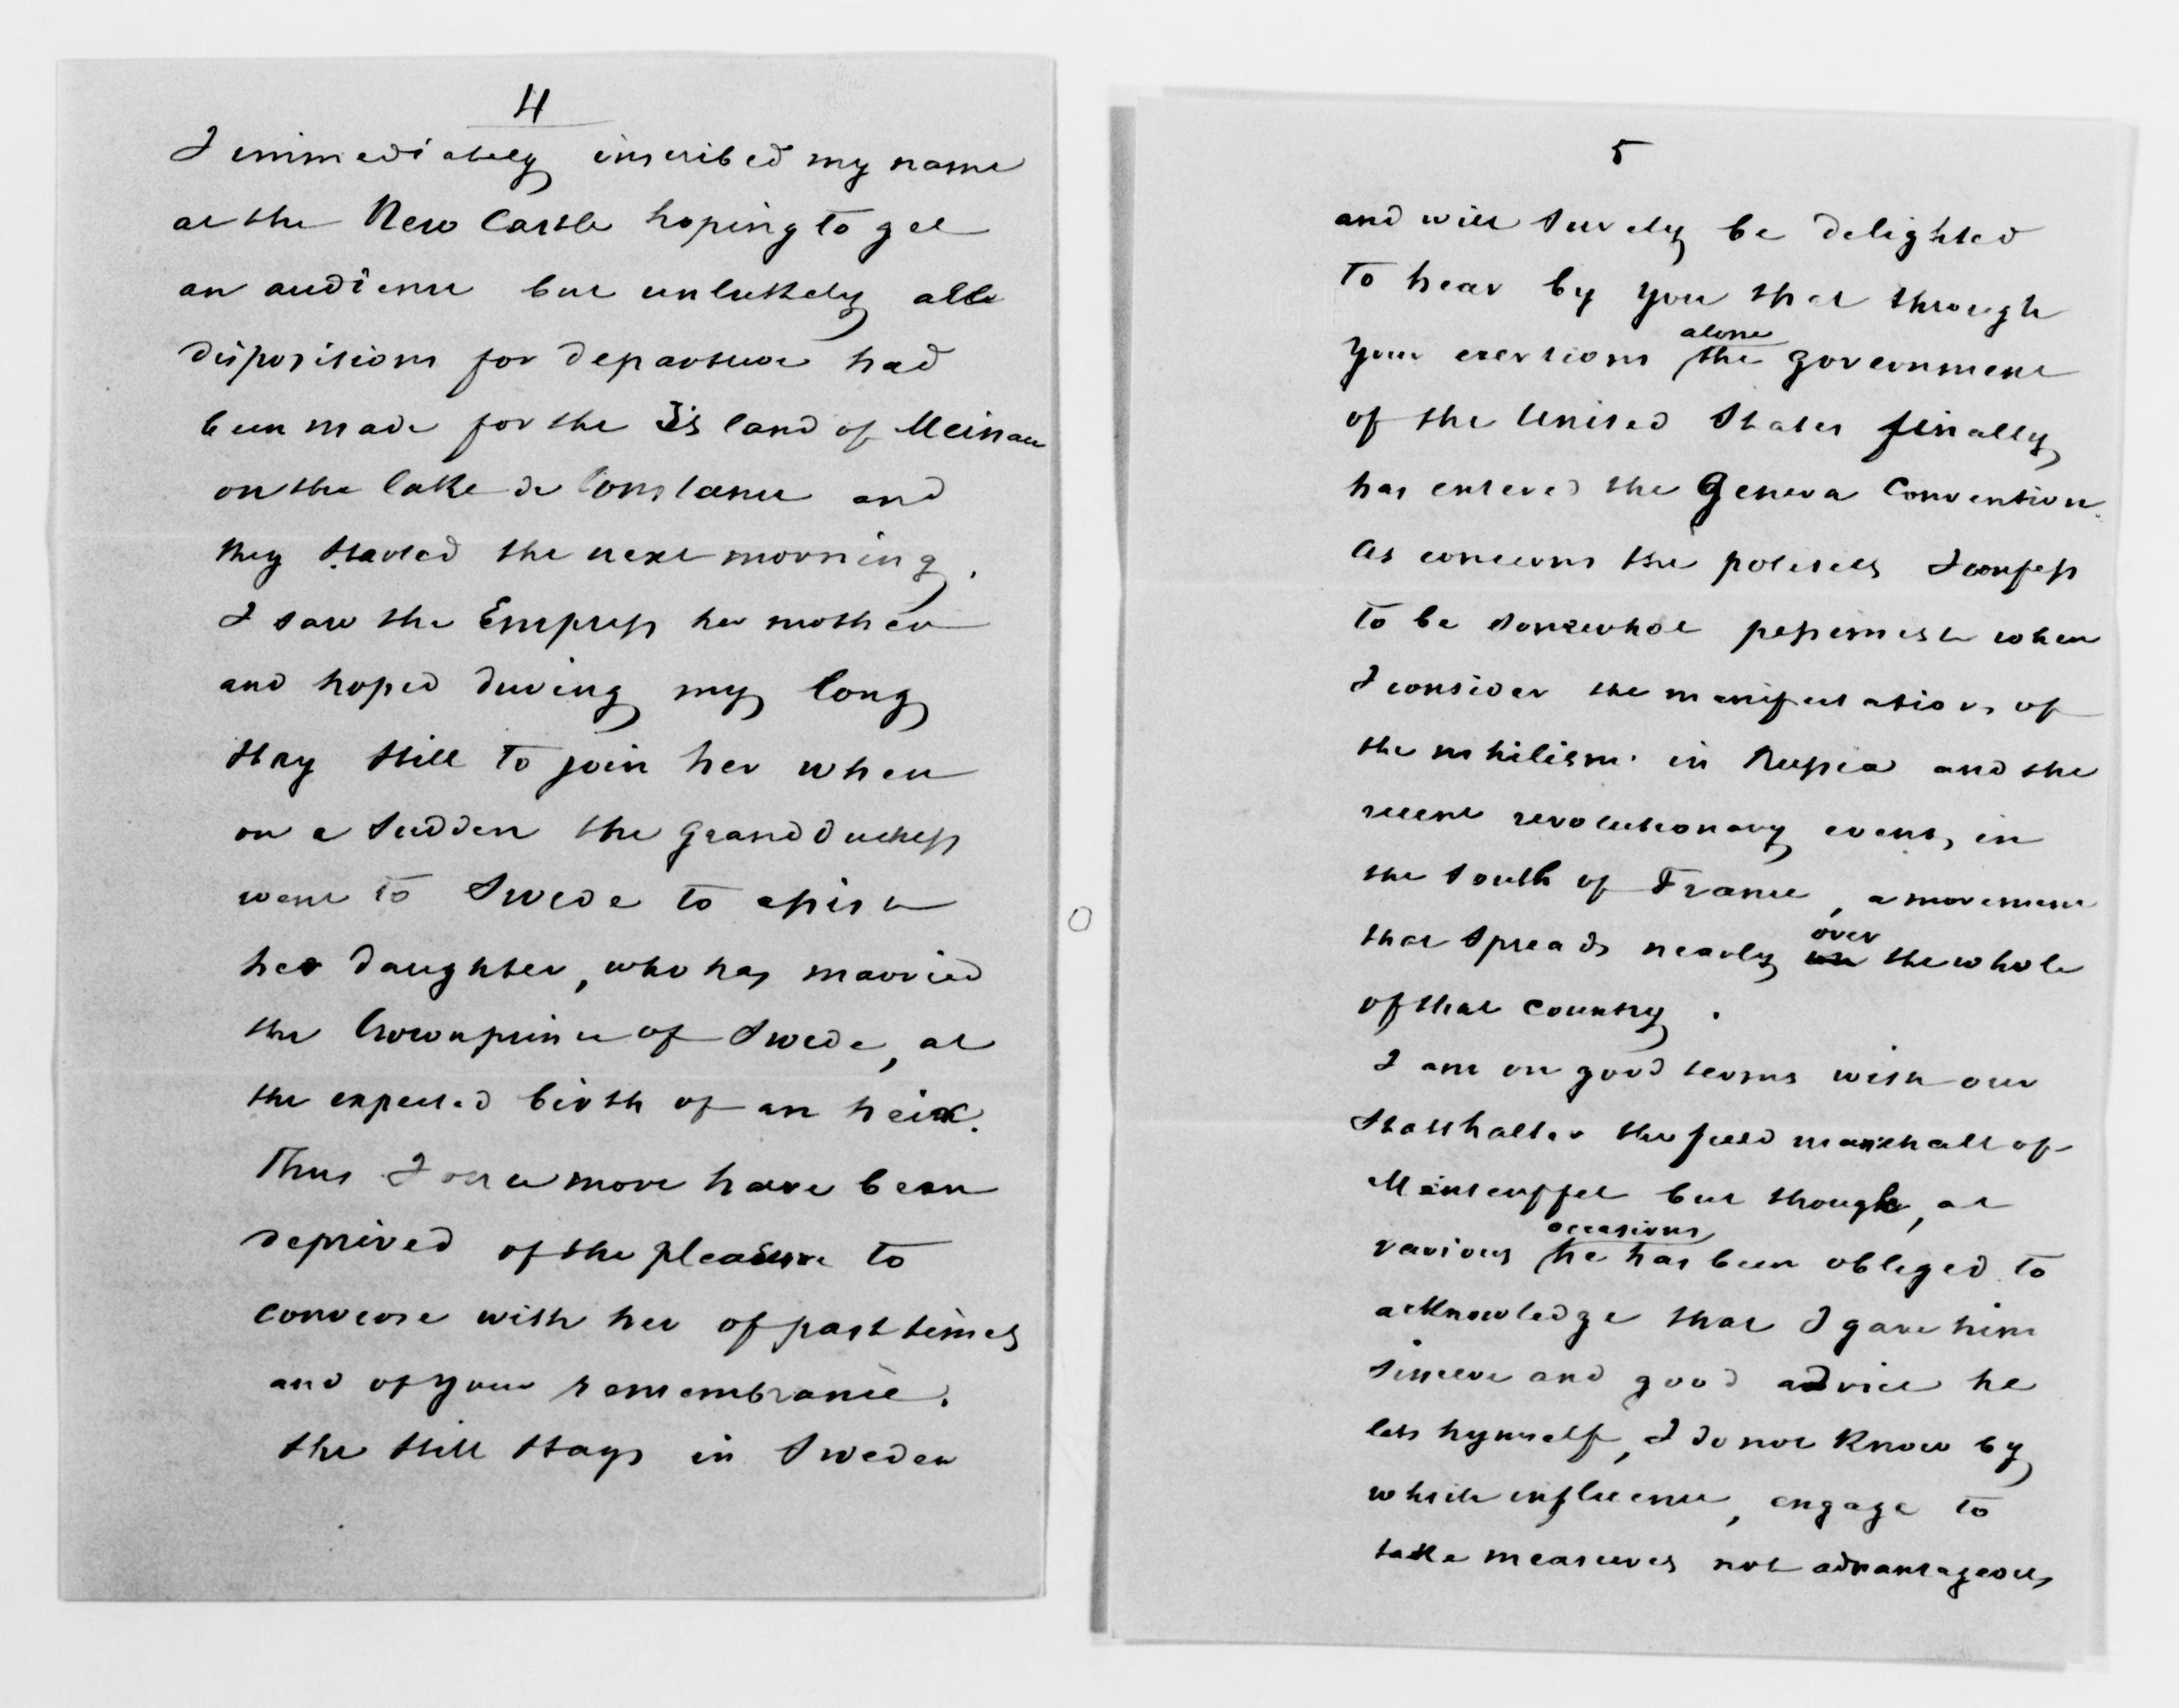 4
I immediately inscribed my name
at the New Castle hoping to get
an audience but unlukkely all
dispositions for departure had
been made for the Island of Meinau
on the lake de Constance and
they started the next morning.
I saw the Empress her mother
and hoped during my long
stay still to join her when
on a sudden the Grandduchess
went to Swede to assist
her daughter, who has married
the Crownprince of Swede, at
the expected birth of an heir.
Thus I once more have been
deprived of the pleasure to
converse with her of past times
and of your remembrance.
She still stays in Sweden
5
and will surely be delighted
to hear by you that through
your exertions alone the government
of the United States finally
has entered the Geneva Convention.
As concerns the politics I confess
to be somewhat pessimist when
I consider the manifestations of
the nihilism in Russia and the
recent revolutionary events in
the South of France, a movement
that spreads nearly over the whole
of that country.
I am on good terms with our
Statthalter the field marshall of
Manteuffel but though, at
various occasions he has been obliged to
acknowledge that I gave him
sincere and good advice he
lets hymself, I do not know by
which influence, engage to
take measures not advantageous